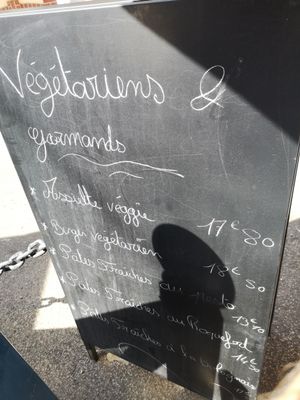 Végétariens &
gourmands
* Assiette véggie 17€80
* Burger végétarien 18€50
* Pates Fraîches au pesto 13€
* Pates Fraîches au Roquefort 14€50
Pates Fraîches à la